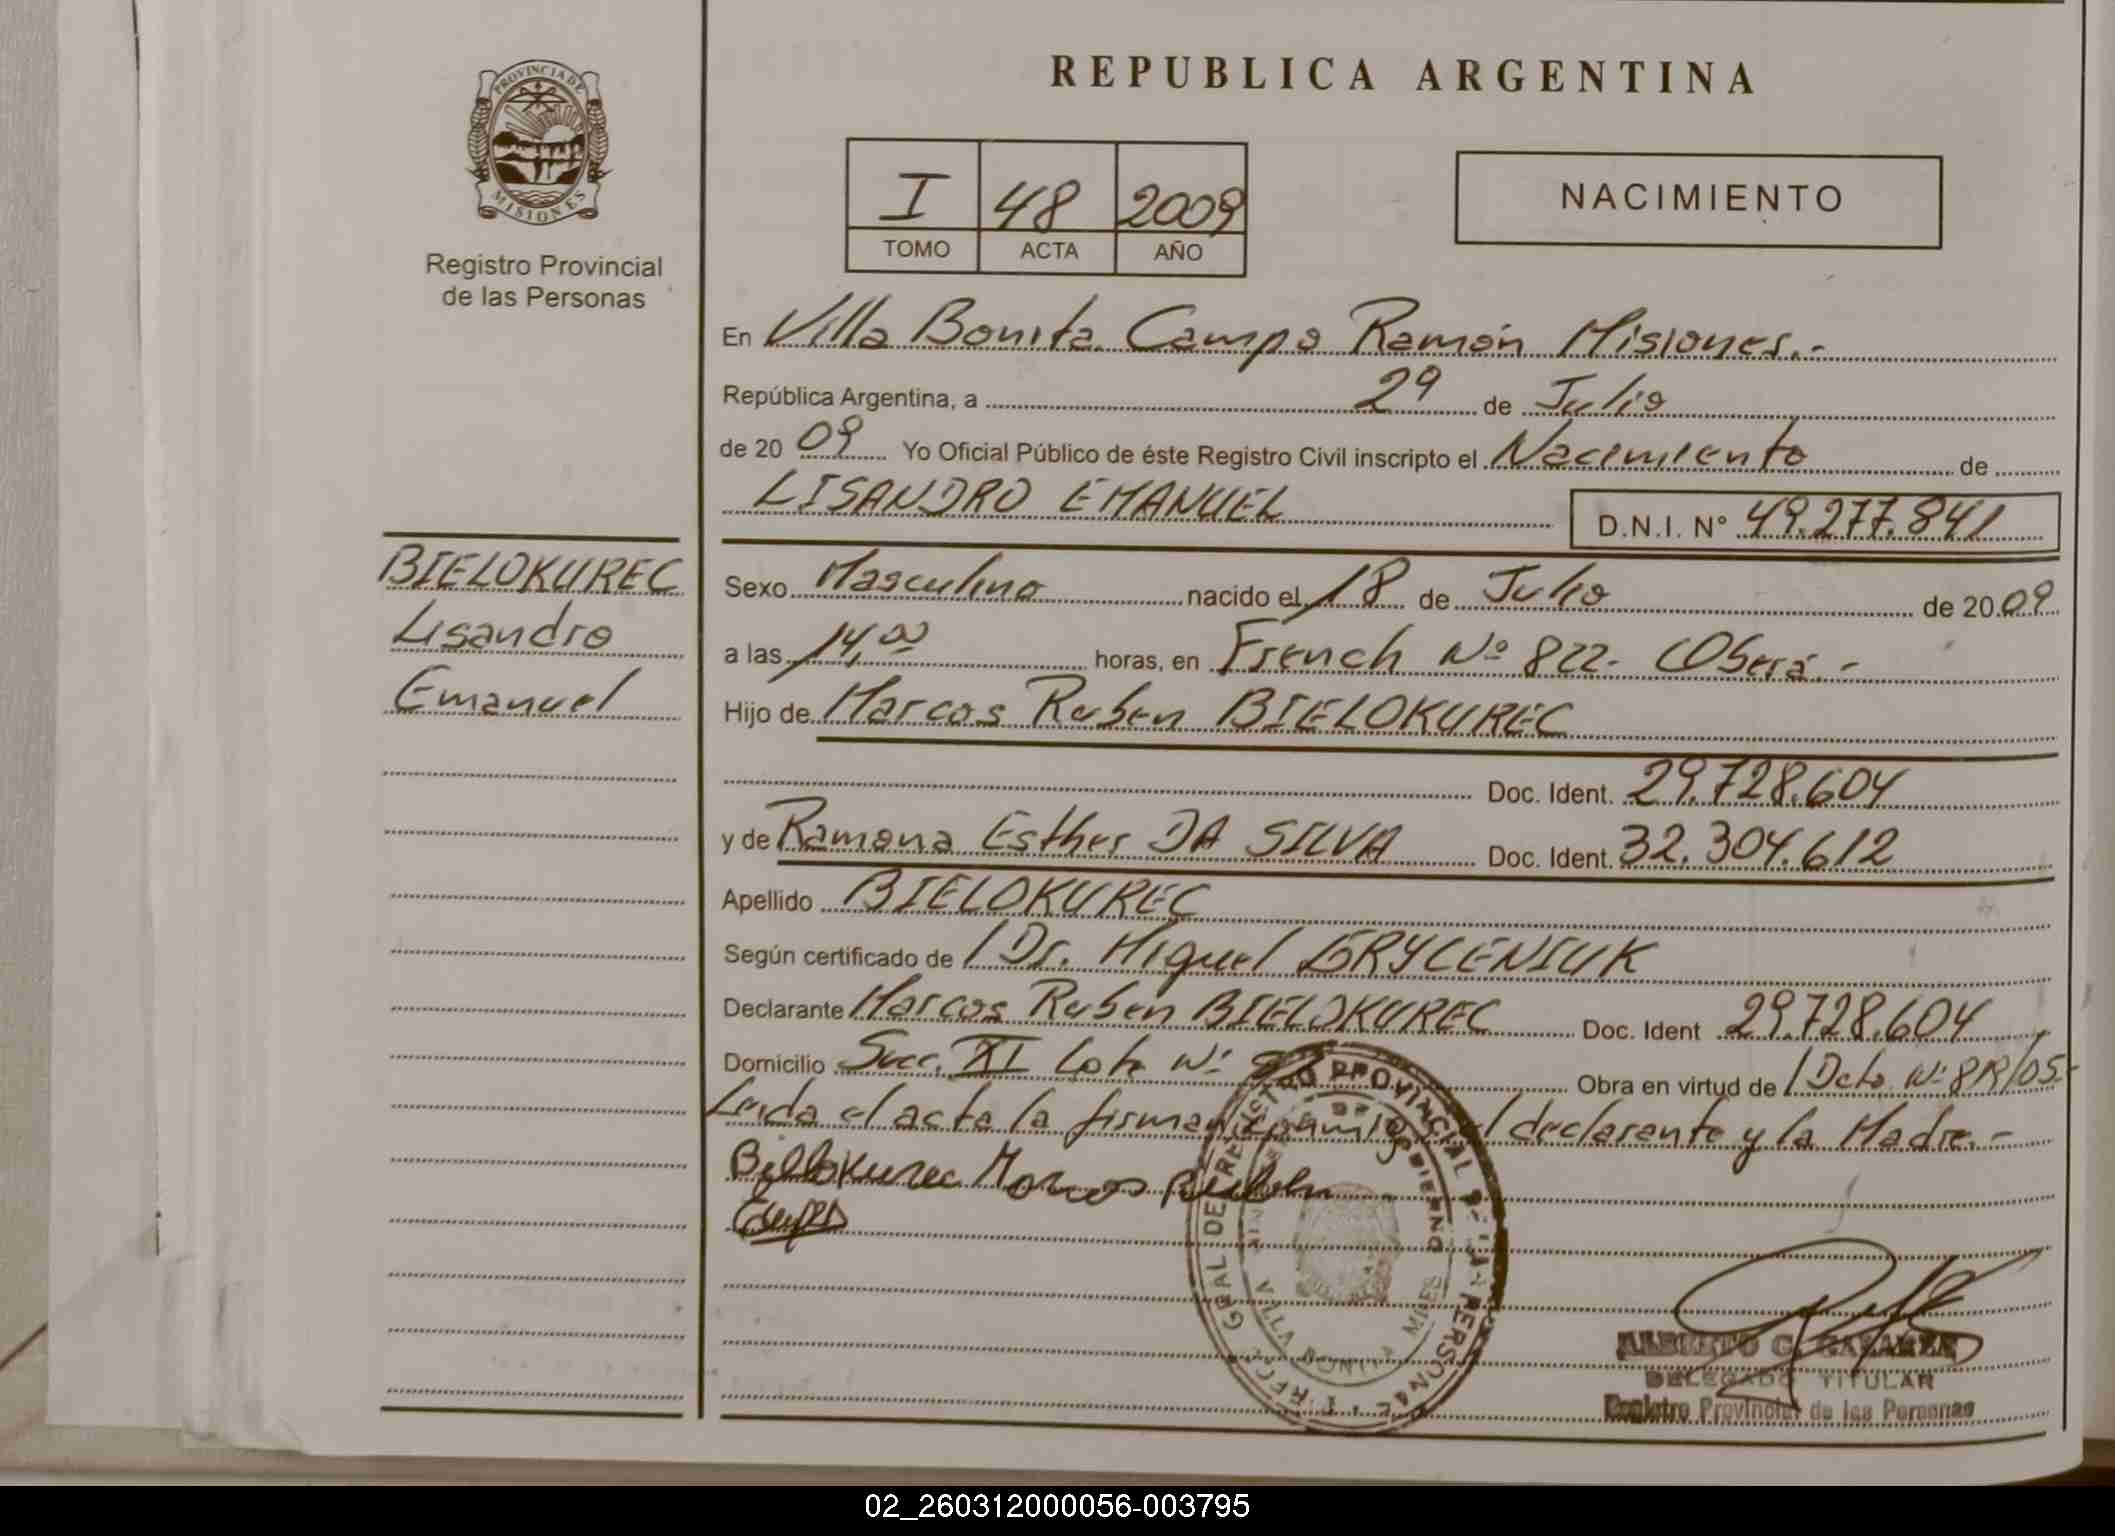 REPUBLICA ARGENTINA
PROVINCIA DE
MISIONES
Registro Provincial
de las Personas
I 48 2009
TOMO ACTA AÑO
NACIMIENTO
En Villa Bonita Campo Ramón Misiones.-
República Argentina, a 29 de Julio
de 2009 Yo Oficial Público de éste Registro Civil inscripto el Nacimiento de
LISANDRO EMANUEL D.N.I. N° 49.277.841
BIELOKUREC
Lisandro
Emanuel
Sexo Masculino nacido el 18 de Julio de 2009
a las 14,00 horas, en French Nº 822- Oberá.-
Hijo de Marcos Ruben BIELOKUREC
Doc. Ident. 29.728.604
y de Ramona Esther DA SILVA Doc. Ident. 32.304.612
Apellido BIELOKUREC
Según certificado de Dr. Miguel GRYCENIUK
Declarante Marcos Ruben BIELOKUREC Doc. Ident 29.728.604
Domicilio Secc. XI Lote Nº Obra en virtud de Dcto Nº 8R/05-
Leida el acta la firman conmigo el declarante y la Madre.-
Bielokurec Marcos Ruben
VILLA BONITA
ALBERTO G.
DELEGADO TITULAR
Registro Provincial de las Personas
02_260312000056-003795